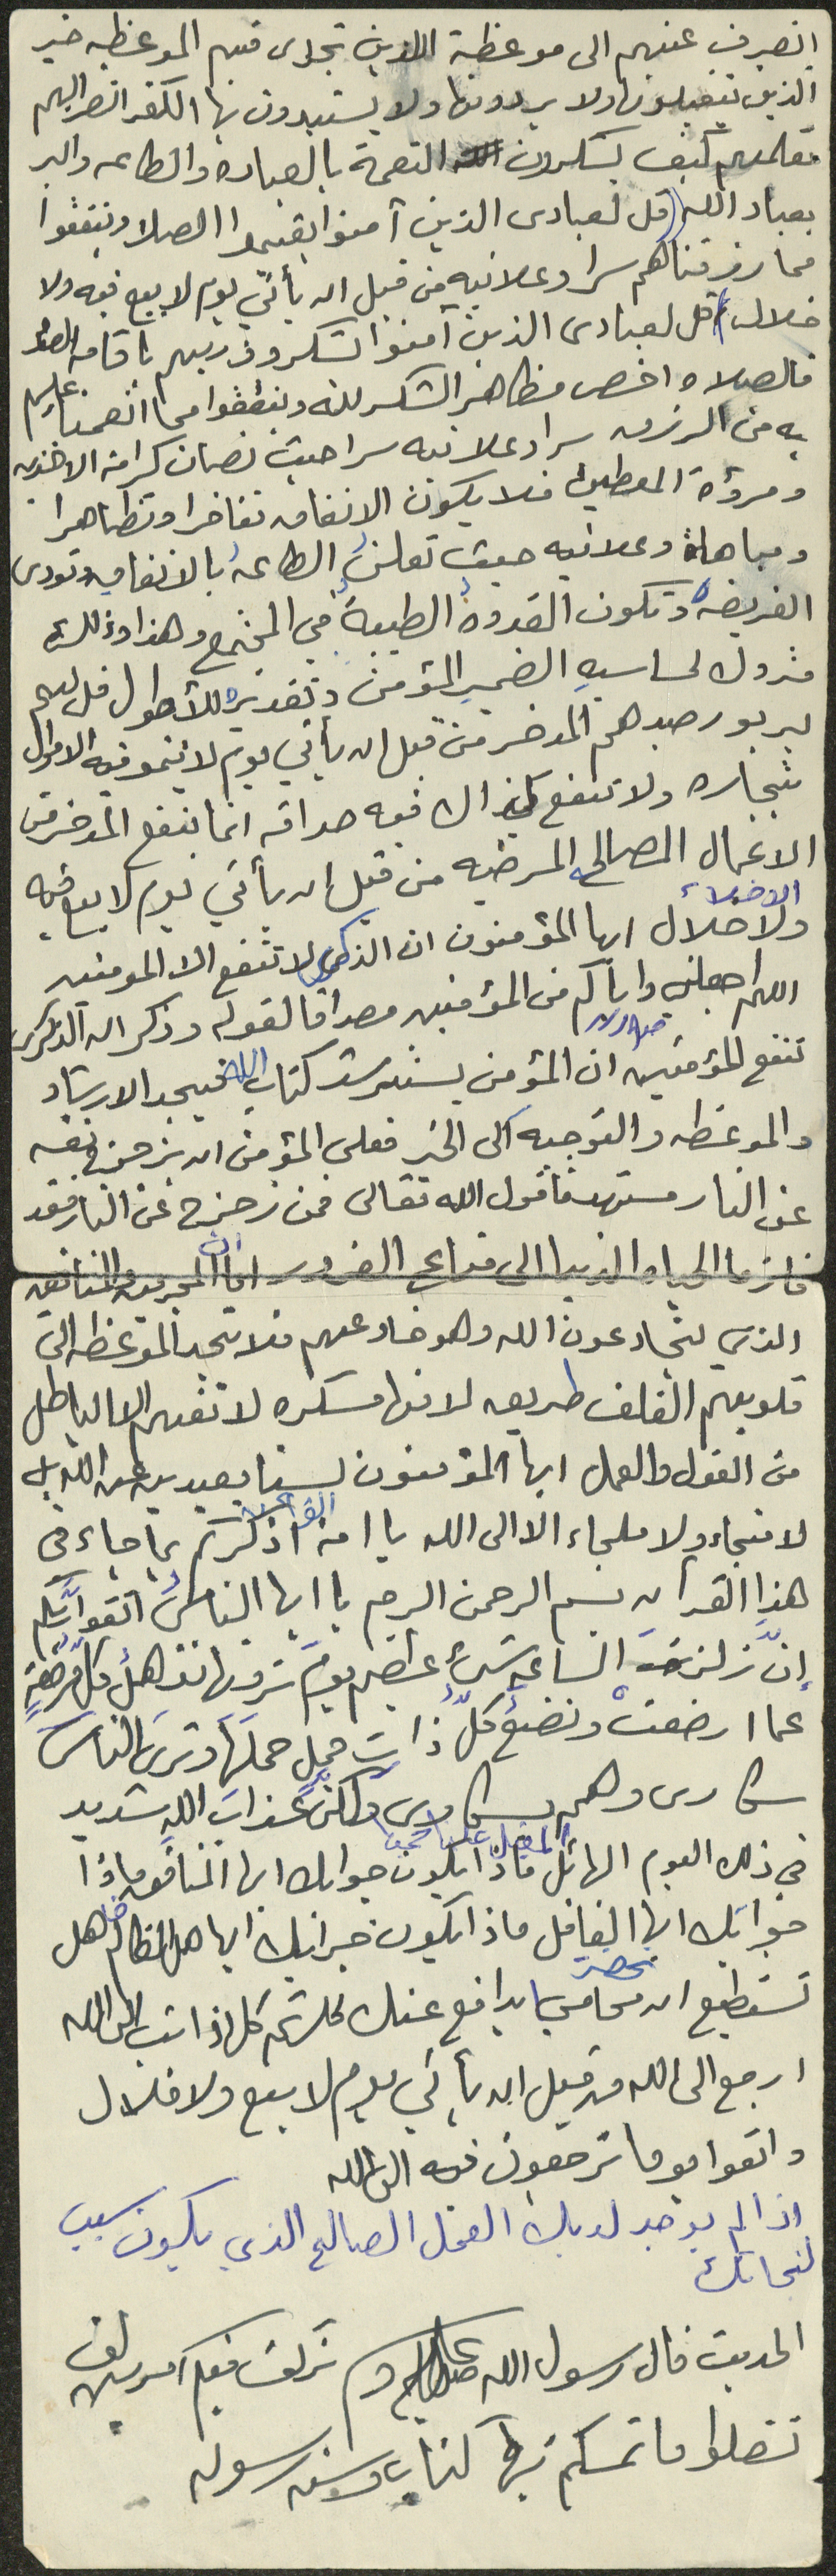 انصرف عنهم الى موعظة الذين تجدى فيهم الموعظه خير
الذين يتقبلونها ولا يردونها ولا يستبدون بها الكفر انصر اليهم
تعلمهم كيف يشكرون النعمة بالعباده والطاعه والبر
بعباد الله (قل لعبادى الذين آمنوا يقيموا الصلاه وينفقوا
مما رزقناهم سرا وعلانيه من قبل ان يأتي يوم لا بيع فيه ولا
خلال) قل لعبادى الذين آمنوا اشكرو ربهم باقامه الصلاه
فالصلاه اخص مظاهر الشكر لله وينفقوا مما انعمنا عليهم
به من الرزق سرا وعلانيه سرا حيث تصان كرامة الاخذين
ومروءة المعطين فلا يكون الانفاق تفاخرا وتظاهرا
ومباهاة وعلانيه حيث تعلن الطاعه بالانفاق وتودى
الفريضه وتكون القدوه الطيبة في المجتمع وهذا وذلك
متروك لحساسيه الضمير المؤمن وتقديره للأحوال قل لهم
ليربو رصيدهم المدخر من قبل ان يأتي يوم لا ينمو فيه الاموال
بتجاره ولا تنفع كذالك فيه صداقه انما ينفع المدخر من
الاعمال الصالحه المرضيه من قبل ان يأتي يوم لا بيع فيه
ولا خلال ايها المؤمنون ان الذكرى لا تنفع الا المومنين
اللهم اجعلني واياكم من المؤمنين مصداقا لقوله وذكر ان الذكرى
تنفع المؤمنين ان المؤمن يسترشد كتاب الله فيجد الارشاد
والموعظه والتوجيه الى الخير فعلى المؤمن ان يزحزح نفسه
عن النار مستهدفا قول الله تعالى فمن زحزح عن النار فقد
فاز وما الحياه الدنيا الى متاع الغرور اما المجرمين والمنافقين
الذين يخادعون الله وهو خادعهم فلا تجد الموعظه الى
قلوبهم الغلف طريقه لانها مسكره لا تفهم الا الباطل
من القول والعمل ايها المؤمنون لسنا بعيدين عن الله بل
لا منجاء ولا ملجاء الا الى الله يا امة القرآن اذكركم بما جاء في
هذا القرآن بسم الرحمن الرحيم يا ايها الناس اتقوا ربكم
إن زلزلة الساعة شئ عظيم يوم ترونها تذهل كل مرضعة
عما ارضعت وتضع كل ذات حمل حملها وترى الناس
سكارى وهم بسكارى ولكن عذاب الله شديد
في ذلك اليوم الهائل ماذا يكون جوابك ايها المنافق ماذا
جوابك ايها الغافل ماذا يكون جوابك ايها الظالم هل
تستطيع ان تحضر محامي يدافع عنك كل اذا تب الى الله
ارجع الى الله من قبل ان يأتي يوم لا بيع ولا خلال
واتقوا يوما ترجعون فيه الى الله
اذا لم يوجد لديك العمل الصالح الذي يكون سبب
لنجاتك
الحديث قال رسول الله صلى الله عليه وسلم تركت فيكم امرين لن
تضلوا ما تمسكتم بها كتاب وسنه رسوله